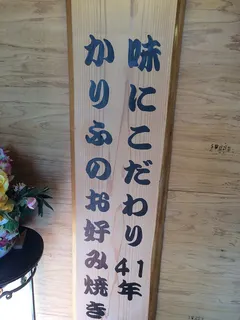 味にこだわり41年
かりふのお好み焼き